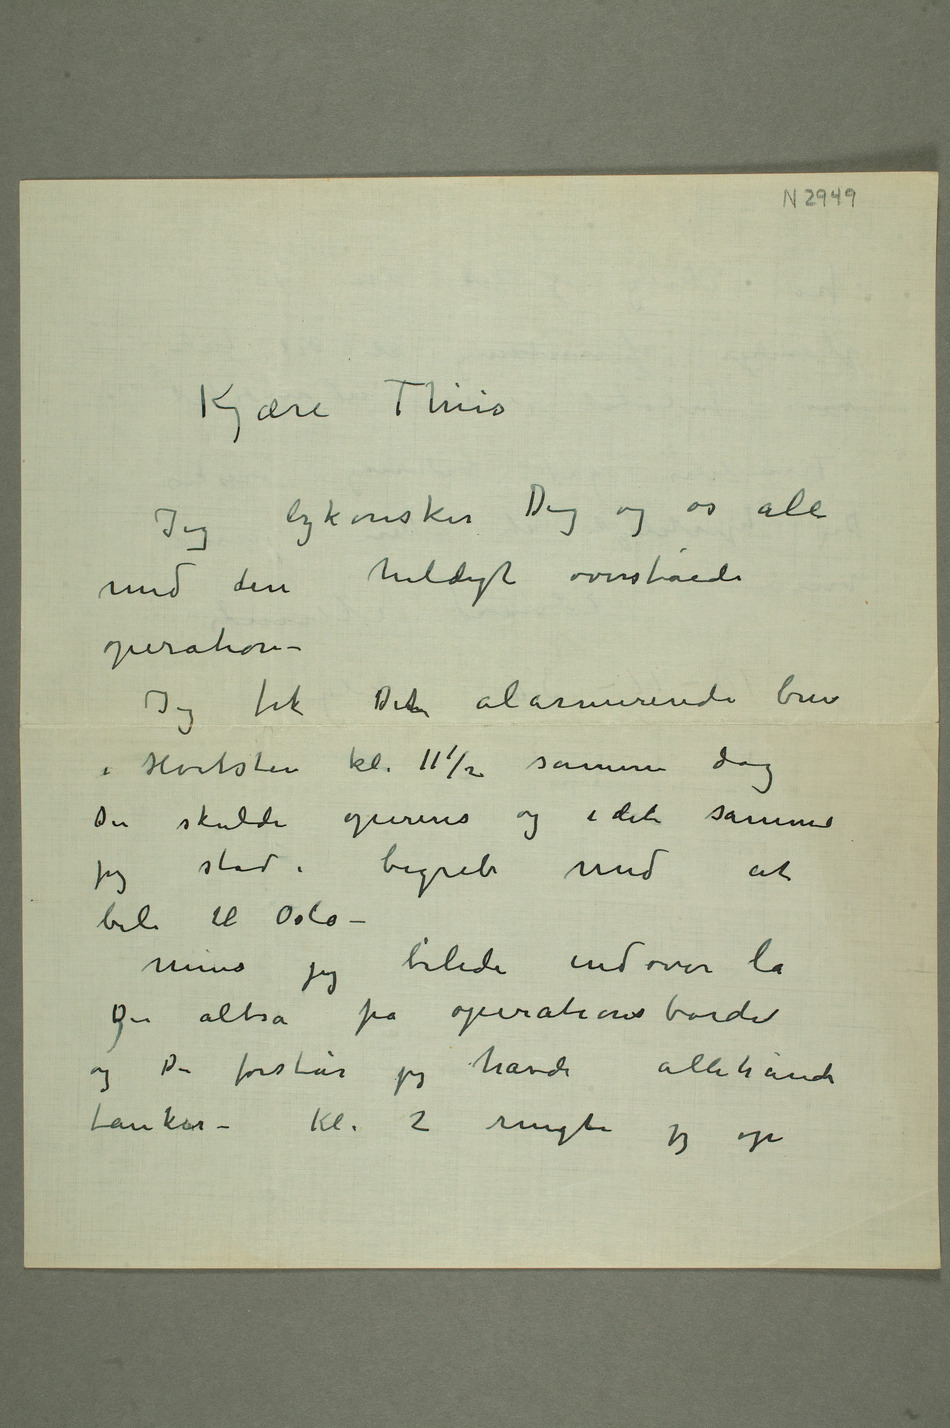 N 2949
Kjære Thiis
Jeg lykønsker Dig og os alle
med den heldigt overståede
operation –
Jeg fik Det alarmerende brev
i Hvitsten kl. 11 1/2 samme dag
Du skulde opereres og i det samme
jeg stod i begreb med at
bile til Oslo –
Mens jeg bilede indover lå
Du altså på operationsbordet
og Du forstår jeg havde allehånde
tanker – Kl. 2 ringte jeg op